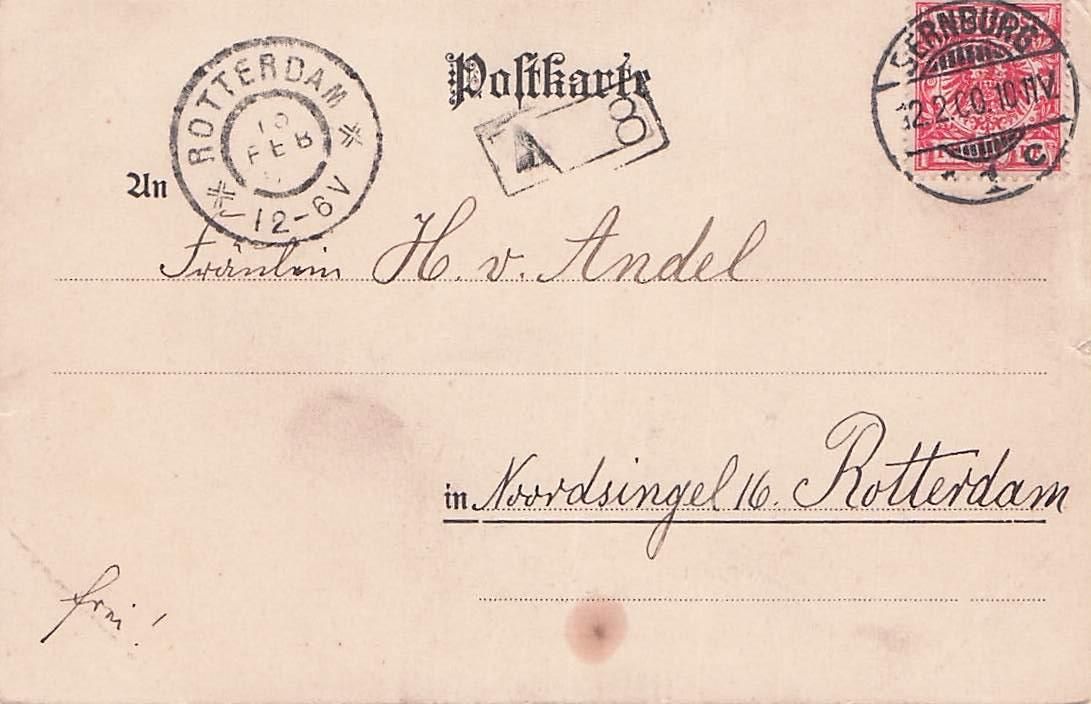 Postkarte
ROTTERDAM
FEB
12-6V
A 8
BERNBURG
10-11V.
* 1 c
An
Fräulein H. v. Andel
in Noordsingel 16. Rotterdam
frei!